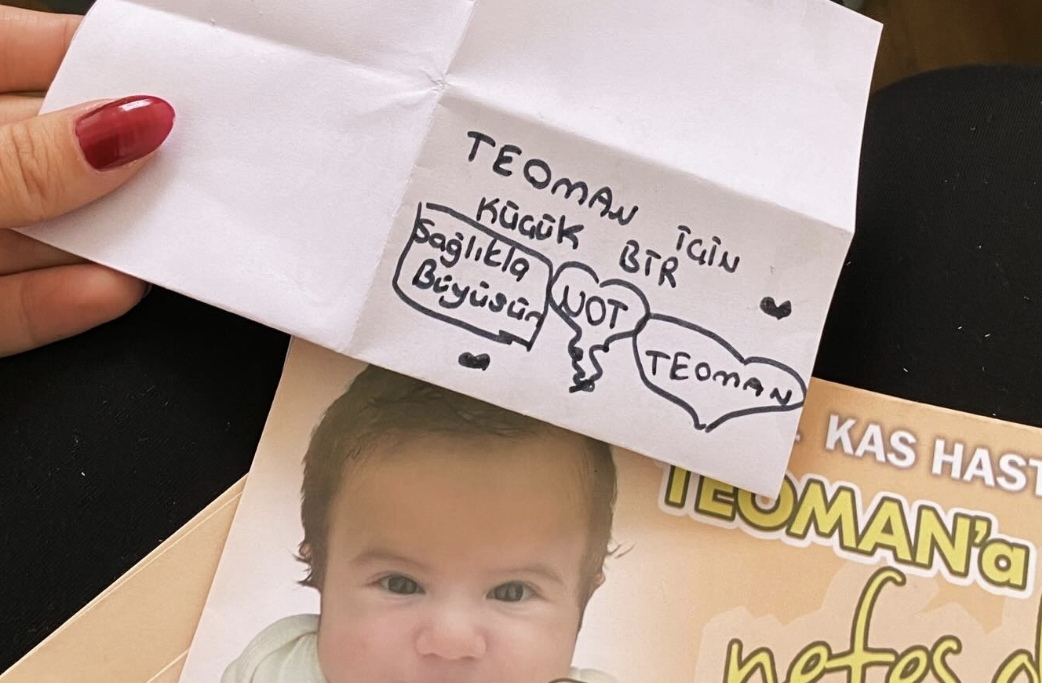 TEOMAN İÇİN
KÜÇÜK BİR
NOT
Sağlıkla
Büyüsün
TEOMAN
KAS HAST
TEOMAN'a
nefes